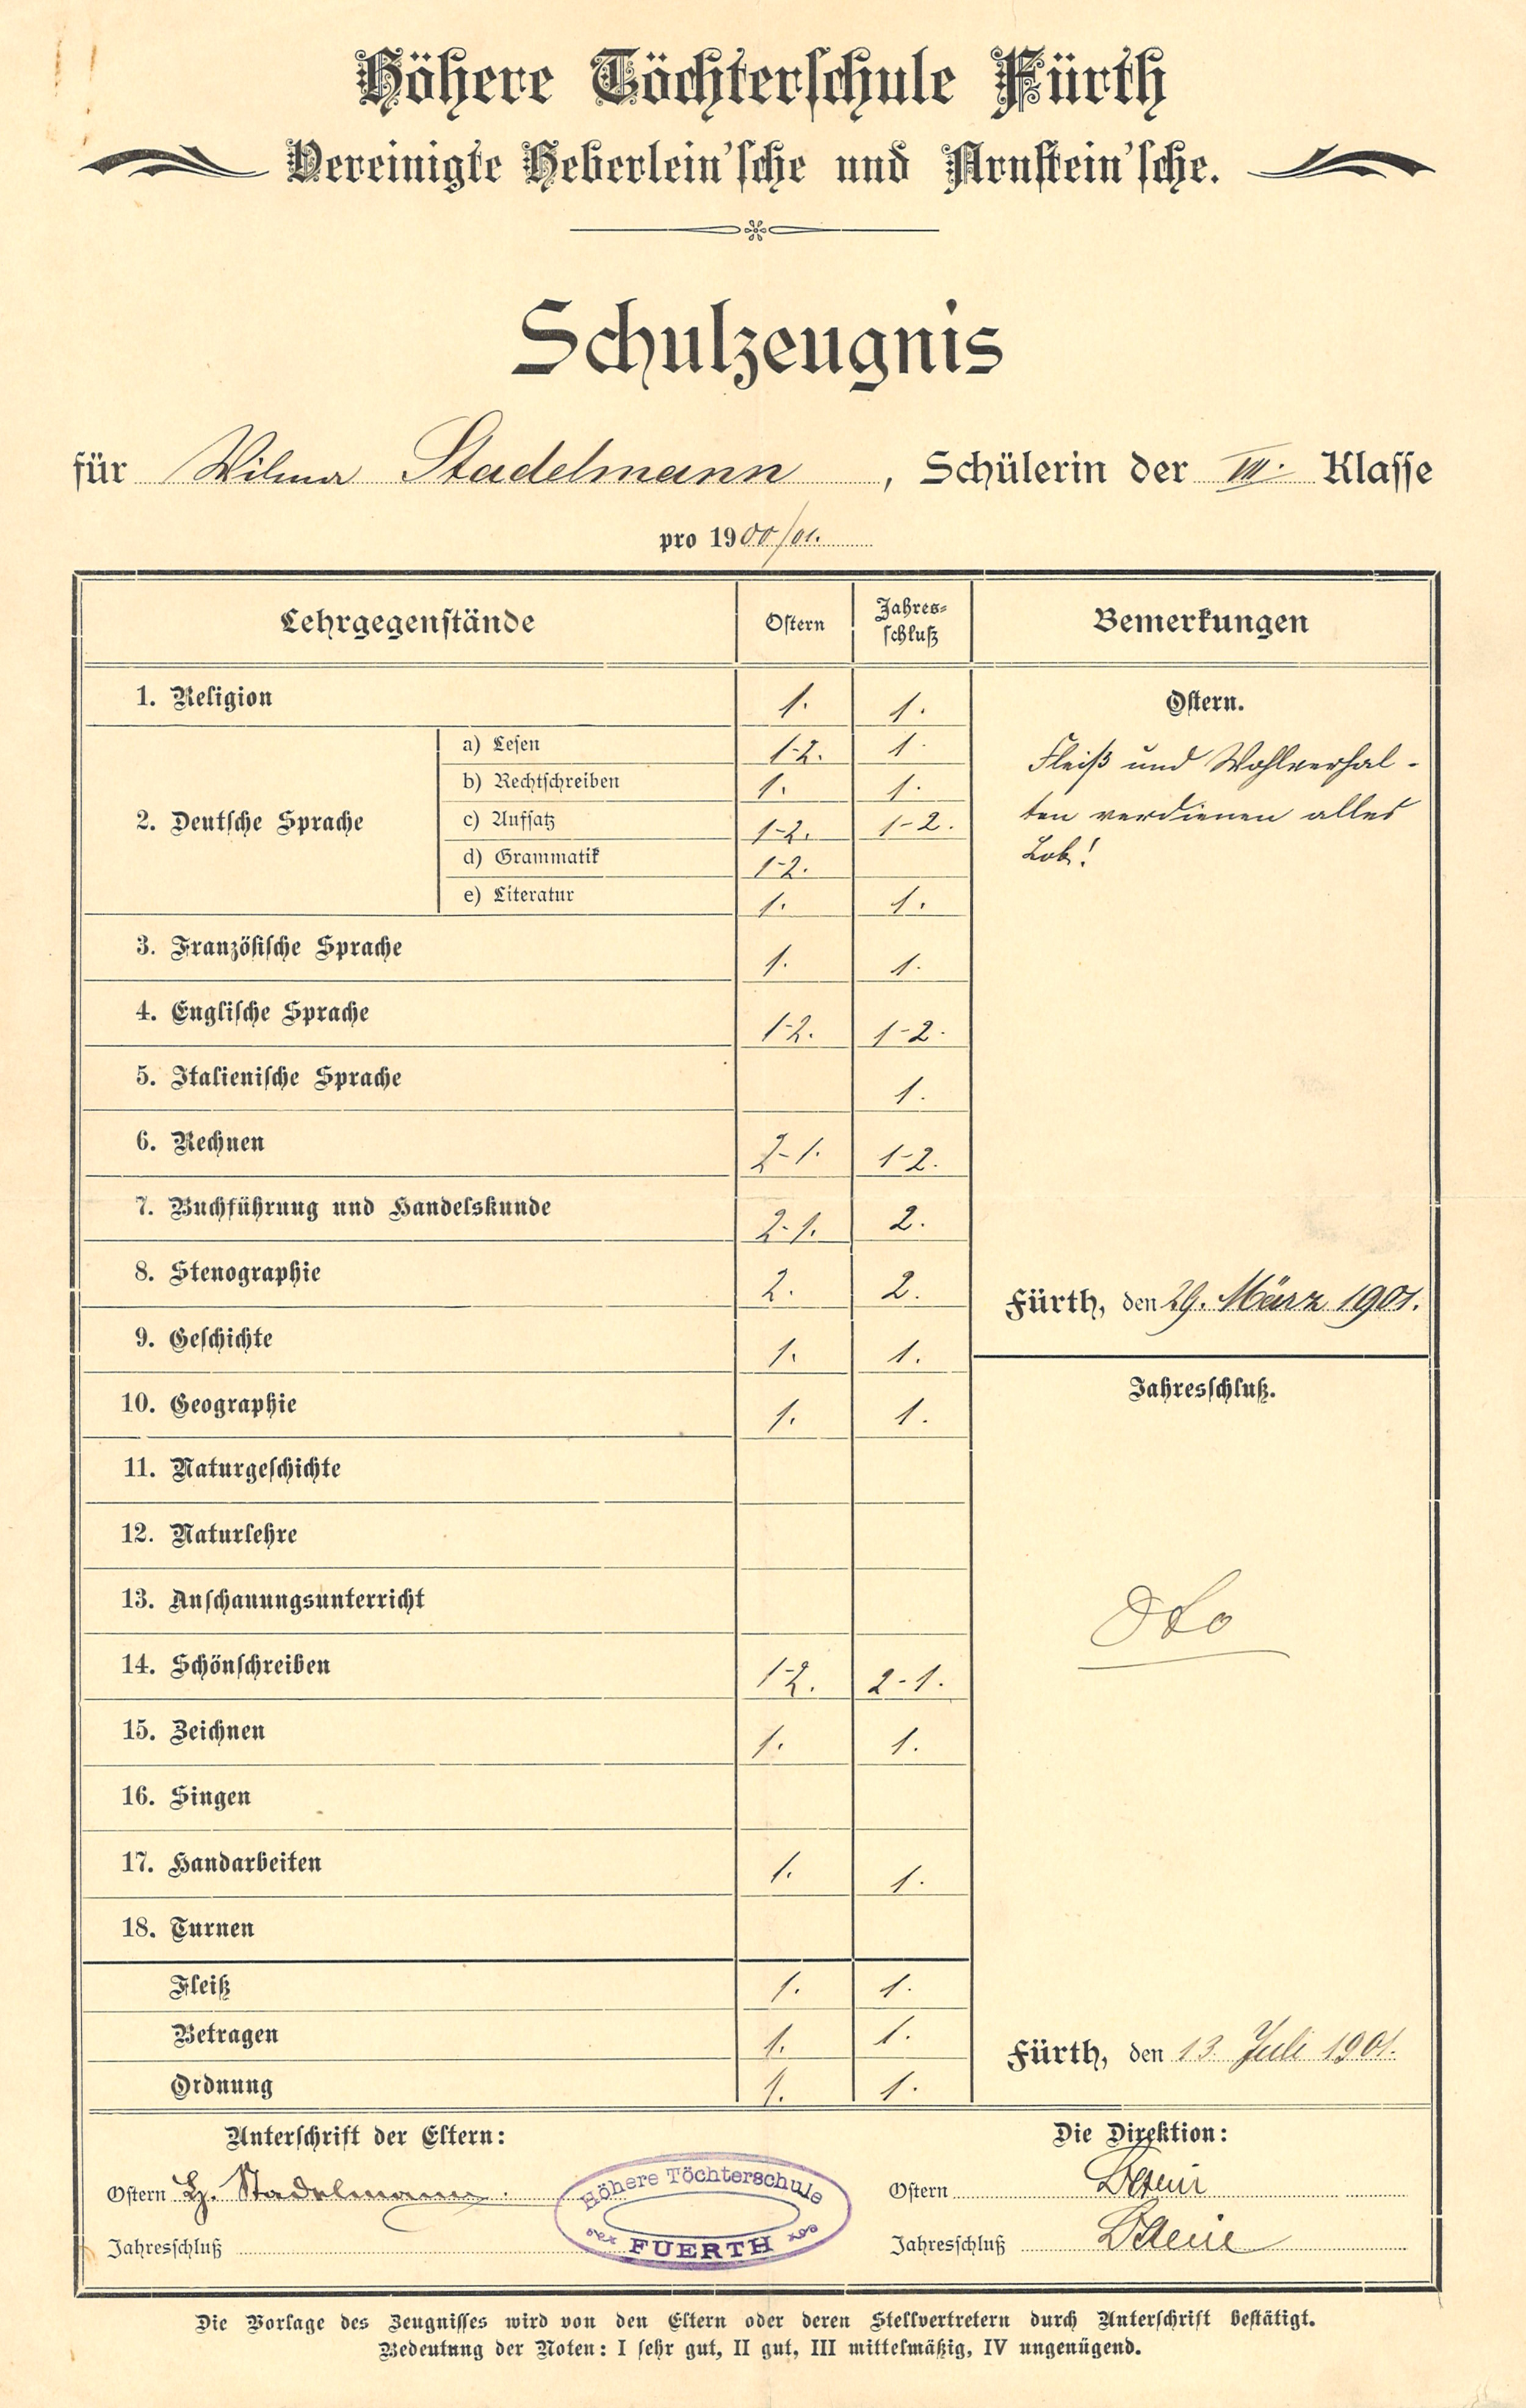 Höhere Töchterschule Fürth
Vereinigte Heberlein'sche und Arnstein'sche.
Schulzeugnis
für Wilma Stadelmann, Schülerin der VII. Klasse
pro 1900/01.
Lehrgegenstände Ostern Jahres- Bemerkungen
schluß
1. Religion 1. 1.
Ostern.
2. Deutsche Sprache
a) Lesen 1-2. 1.
b) Rechtschreiben 1. 1.
c) Aufsatz 1-2. 1-2.
d) Grammatik 1-2.
e) Literatur 1. 1.
Fleiß und Wohlverhal-
ten verdienen alles
Lob!
3. Französische Sprache 1. 1.
4. Englische Sprache 1-2. 1-2.
5. Italienische Sprache 1.
6. Rechnen 2-1. 1-2.
7. Buchführung und Handelskunde 2-1. 2.
8. Stenographie 2. 2.
Fürth, den 29. März 1901.
9. Geschichte 1. 1.
Jahresschluß.
10. Geographie 1. 1.
11. Naturgeschichte
12. Naturlehre
13. Anschauungsunterricht
Dto
14. Schönschreiben 1-2. 2-1.
15. Zeichnen 1. 1.
16. Singen
17. Handarbeiten 1. 1.
18. Turnen
Fleiß 1. 1.
Betragen 1. 1.
Ordnung 1. 1.
Fürth, den 13. Juli 1901.
Unterschrift der Eltern:
Ostern H. Stadelmann.
Jahresschluß
Höhere Töchterschule
FUERTH
Die Direktion:
Ostern
Jahresschluß
Die Vorlage des Zeugnisses wird von den Eltern oder deren Stellvertretern durch Unterschrift bestätigt.
Bedeutung der Noten: I sehr gut, II gut, III mittelmäßig, IV ungenügend.